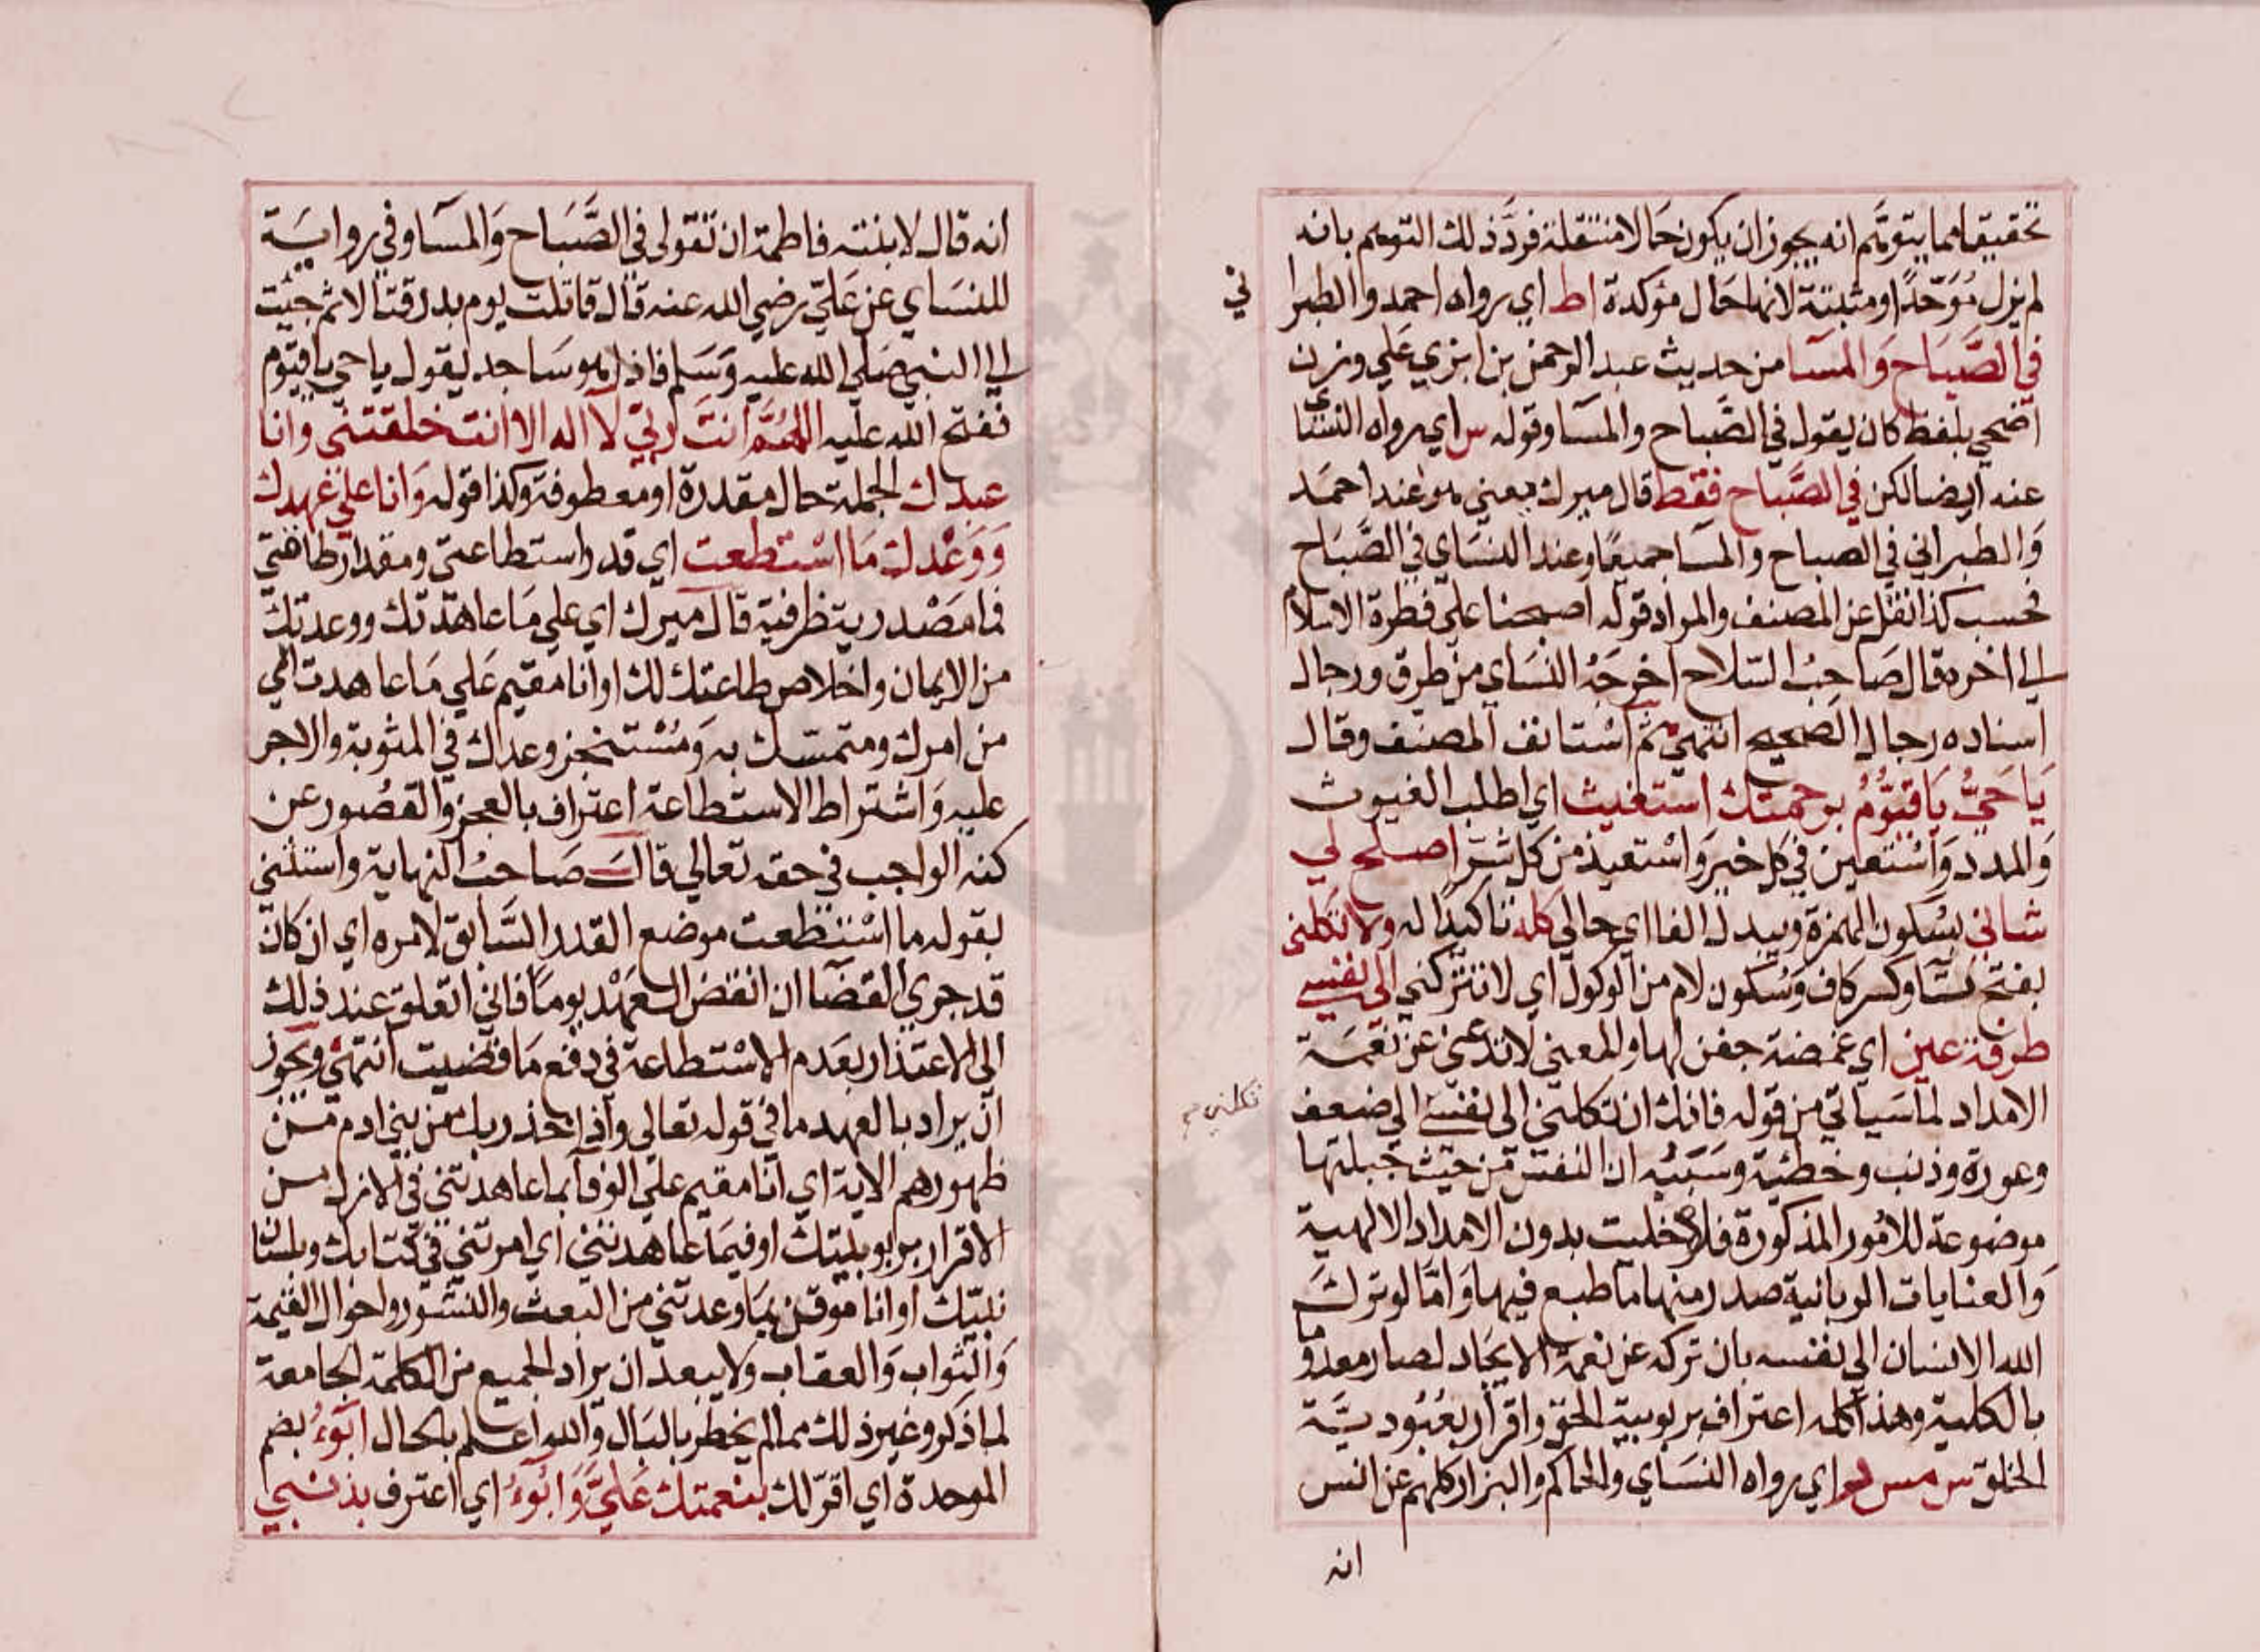 تحقيقا مما يتوهم انه يجوز ان يكون حالا منتقلة فرد ذلك التوهم بانه
لم يزل موحدا او مثبتة لانها حال مؤكدة اط اي رواه احمد والطبرا
ني
في الصباح والمسا من حديث عبد الرحمن بن ابزي علي وزن
اضحي بلفظ كان يقول في الصباح والمسا وقوله س اي رواه النسائي
عنه ايضا لكن في الصباح فقط قال ميرك يعني هو عند احمد
والطبراني في الصباح والمسا جميعا وعند النساي في الصباح
فحسب كذا نقل عن المصنف والمراد قوله اصبحنا علي فطرة الاسلام
الي اخره قال صاحب السلاح اخرجه النساي من طرق ورجال
اسناده رجال الصحيح انتهي ثم استانف المصنف وقال
يا حي يا قيوم برحمتك استغيث اي اطلب الغيوث
والمدد واستعين في كل خير واستعيذ من كل شر اصلح لي
شاني بسكون الهمزة ويبدل الفا اي حالي كله تاكيدا له ولا تكلني
بفتح تا وكسر كاف وسكون لام من الوكول اي لا تتركني الى نفسي
طرفة عين اي غمضة جفن لها والمعني لا تدعني عن نعمة
الامداد لما سياتي من قوله فانك ان تكلني الى نفسي الي ضعف
تكلني
وعورة وذنب وخطئية وسببه ان النفس من حيث جبلتها
موضوعة للامور المذكورة فلو خليت بدون الامداد الالهية
والعنايات الربانية صدر منها ما طبع فيها واما لو ترك
الله الانسان الي نفسه بان تركه عن نعمة الايجاد لصار معدوما
بالكلية وهذا كله اعتراف بربوبية الحق واقرار بعبودية
الخلق س مس ر اي رواه النساي والحاكم والبزار كلهم عن انس
انه
انه قال لابنته فاطمة ان تقولي في الصباح والمسا وفي رواية
للنساي عن علي رضي الله عنه قال قاتلت يوم بدر قتالا ثم جيئت
الي النبي صلي الله عليه وسلم فاذا هو ساجد يقول يا حي يا قيوم
ففتح الله عليه اللهم انت ربي لا اله الا انت خلقتني وانا
عبدك الجملة حال مقدرة او معطوفة وكذا قوله وانا علي عهدك
ووعدك ما استطعت اي قدر استطاعتي ومقدار طاقتي
فما مصدرية ظرفية قال ميرك اي علي ما عاهدتك ووعدتك
من الايمان واخلاص طاعتك لك او انا مقيم علي ما عاهدت الي
من امرك ومتمسك به ومستنجز وعدك في المثوبة والاجر
عليه واشتراط الاستطاعة اعتراف بالعجز والقصور عن
كنه الواجب في حقه تعالي قال صاحب النهاية واستثني
بقوله ما استطعت موضع القدر السابق لامره اي ان كان
قد جري القضا ان انقض العهد يوما فاني اتعلق عند ذلك
الى الاعتذار بعدم الاستطاعة في دفع ما قضيت انتهي ويجوز
ان يراد بالعهد ما في قوله تعالى واذ اخذ ربك من بني ادم من
ظهورهم الاية اي انا مقيم علي الوفا بما عاهدتني في الازل من
الاقرار بربوبيتك او فيما عاهدتني اي امرتني في كتابك ولسان
نبيك او انا موقن بما وعدتني من البعث والنشور واحوال القيمة
والثواب والعقاب ولا يبعد ان يراد الجميع من الكلمة الجامعة
لما ذكر وغير ذلك مما لم يخطر بالبال والله اعلم بالحال ابوء بضم
الموحدة اي اقر لك بنعمتك علي وابوء اي اعترف بذنبي